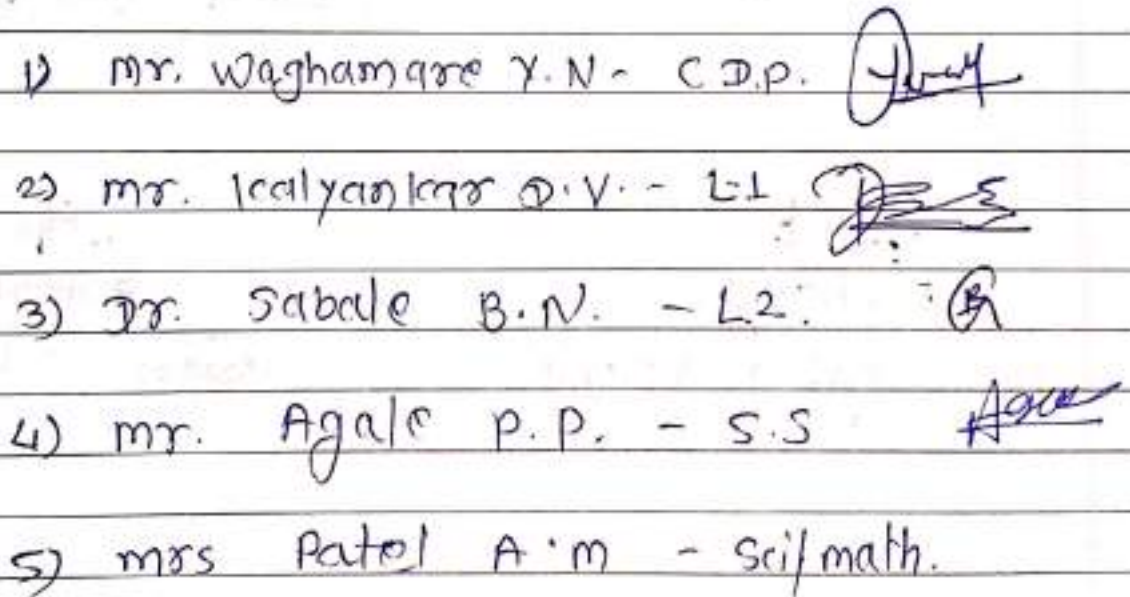 1) Mr. Waghamare Y.N- C D.P.
2) Mr. Kalyankar D.V. - L1
3) Dr. Sabale B.N. - L2.
4) Mr. Agale P.P. - S.S
5) Mrs Patel A.M - Sci/math.